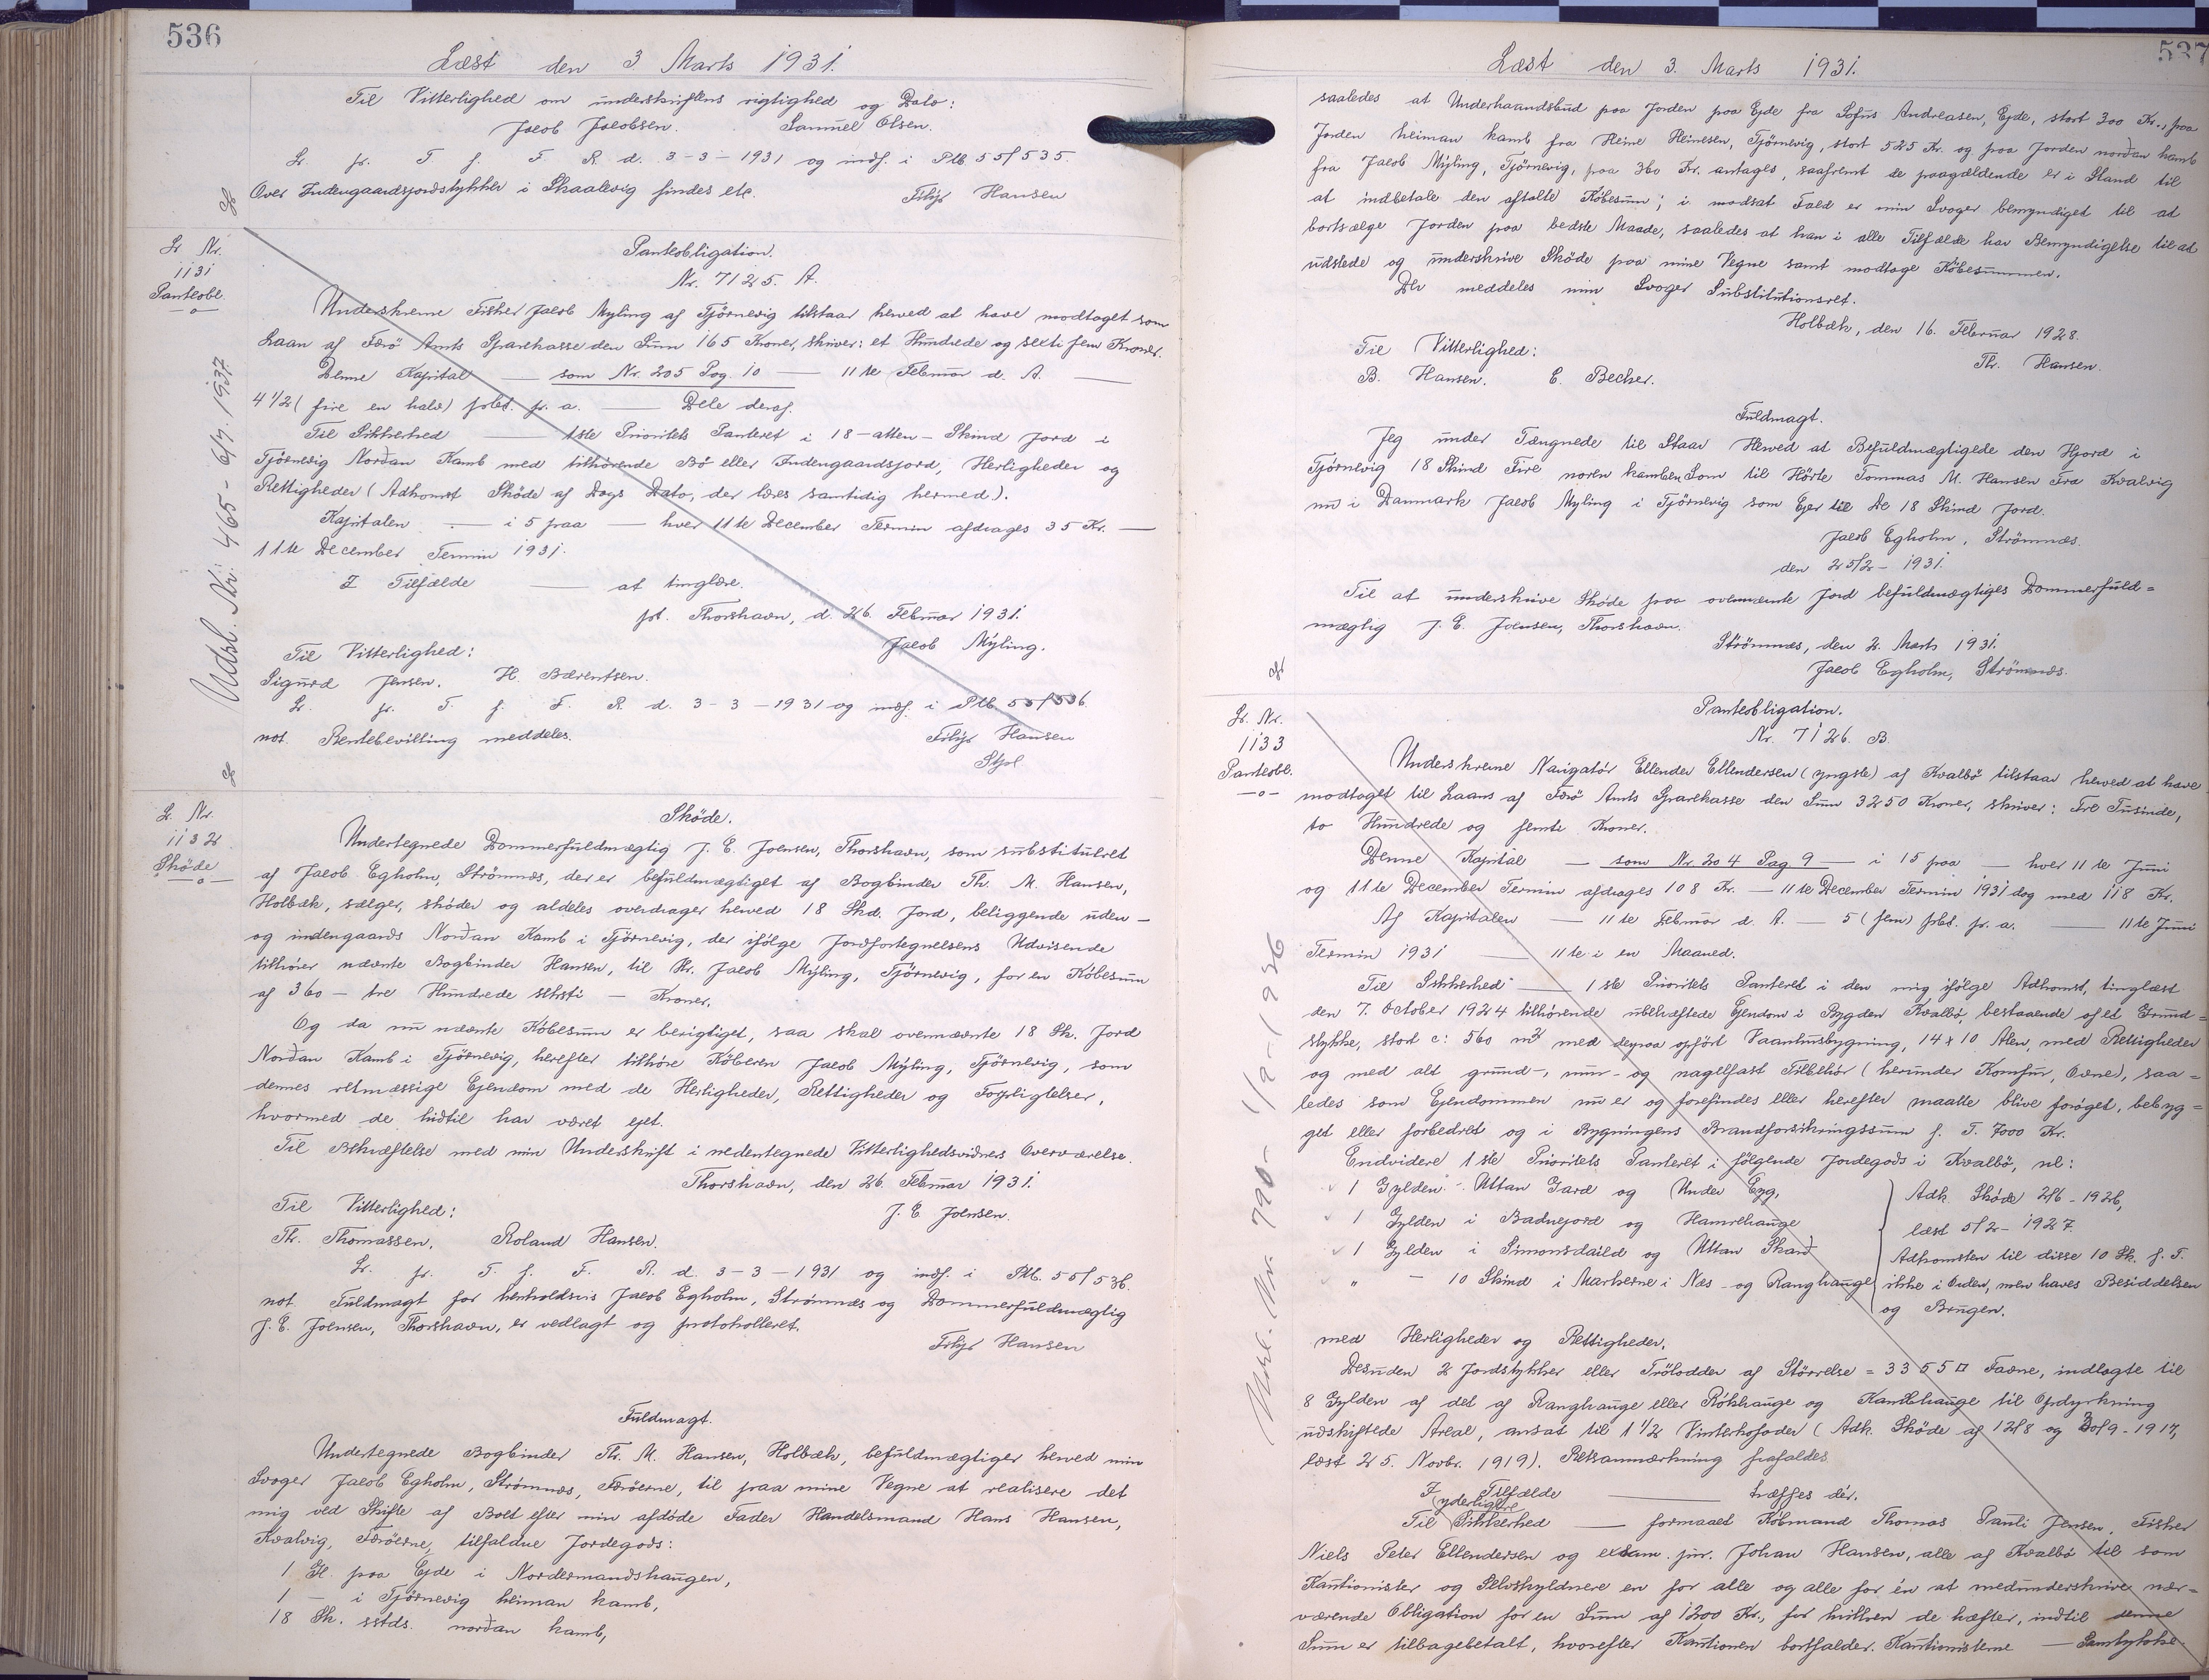 536
Læst den 3 Marts 1931.
Til Vitterlighed om underskriftens rigtighed og Dato:
Jacob Jacobsen. Samuel Olsen.
Lr. pr. T. f. F. R. d. 3-3-1931 og indf. i Plb 55/535.
Over Indengaardsjordstykker i Skaalevig findes etc. Filip Hansen
Lr Nr.
1131
Panteobl.
Udsl. Nr: 465 - 6/7. 1937
Panteobligation.
Nr. 7125. A.
Underskrevne Fisker Jacob Myling af Tjörnevig tilstaar herved at have modtaget som
Laan af Færö Amts Sparekasse den Sum 165 Kroner, skriver: et Hundrede og sexti fem Kroner.
Denne Kapital — som Nr. 205 Pag. 10 — 11te Februar d. A. —
4 1/2 (fire en halv) pCt. p. a. — Dele deraf.
Til Sikkerhed — 1ste Prioritets Panteret i 18 - atten - Skind Jord i
Tjörnevig Norðan Kamb med tilhörende Bö eller Indengaardsjord, Herligheder og
Rettigheder (Adkomst Sköde af Dags Dato, der læses samtidig hermed).
Kapitalen — i 5 paa — hver 11te December Termin afdrages 35 Kr. —
11te December Termin 1931.
I Tilfælde — at tinglæse.
pt. Thorshavn, d. 26. Februar 1931.
Til Vitterlighed: Jacob Mýling.
Sigurd Jensen. H. Bærentsen.
Lr. pr. T. f. F. R. d. 3-3-1931 og indf. i Plb 55/536.
not. Rentebevilling meddeles. Filip Hansen
Lr Nr.
1132
Sköde
Sköde.
Undertegnede Dommerfuldmægtig J. E. Joensen, Thorshavn, som substitueret
af Jacob Egholm, Strömnæs, der er befuldmægtiget af Bogbinder Th. M. Hansen,
Holbæk, sælger, sköder og aldeles overdrager herved 18 Skd. Jord, beliggende uden-
og indengaards Norðan Kamb i Tjörnevig, der ifölge Jordfortegnelsens Udvisende
tilhörer nævnte Bogbinder Hansen, til Hr. Jacob Mýling, Tjörnevig, for en Köbesum
af 360 - tre Hundrede seksti - Kroner.
Og da nu nævnte Köbesum er berigtiget, saa skal ovennævnte 18 Sk. Jord
Norðan Kamb i Tjörnevig, herefter tilhöre Köberen Jacob Mýling, Tjörnevig, som
dennes retmæssige Ejendom med de Herligheder, Rettigheder og Forpligtelser,
hvormed de hidtil har været ejet.
Til Bekræftelse med min Underskrift i nedentegnede Vitterlighedsvidners Overværelse.
Thorshavn, den 26. Februar 1931.
Til Vitterlighed: J. E. Joensen.
Th. Thomassen. Roland Hansen.
Lr. pr. T. f. F. R. d. 3-3-1931 og indf. i Plb. 55/536.
not. Fuldmagt for henholdsvis Jacob Egholm, Strömnæs og Dommerfuldmægtig
J. E. Joensen, Thorshavn, er vedlagt og protokolleret.
Filip Hansen
Fuldmagt.
Undertegnede Bogbinder Th. M. Hansen, Holbæk, befuldmægtiger herved min
Svoger Jacob Egholm, Strömnæs, Færöerne, til paa mine Vegne at realisere det
mig ved Skifte af Boet efter min afdöde Fader Handelsmand Hans Hansen,
Kvalvig, Færöerne, tilfaldne Jordegods:
1 Gl. paa Ejde i Nordermandshaugen,
1 — i Tjörnevig heiman kamb,
18 Sk. sstds. norðan kamb,
537
Læst den 3. Marts 1931.
saaledes at Underhaandsbud paa Jorden paa Ejde fra Sofus Andreasen, Ejde, stort 300 Kr., paa
Jorden heiman kamb fra Heine Heinesen, Tjörnevig, stort 525 Kr. og paa Jorden norðan kamb
fra Jacob Mýling, Tjörnevig, paa 360 Kr. antages, saafremt de paagældende er i Stand til
at indbetale den aftalte Köbesum; i modsat Fald er min Svoger bemyndiget til at
bortsælge Jorden paa bedste Maade, saaledes at han i alle Tilfælde har Bemyndigelse til at
udstede og underskrive Sköde paa mine Vegne samt modtage Köbesummen.
Der meddeles min Svoger Substitutionsret.
Holbæk, den 16. Februar 1928.
Til Vitterlighed: Th. Hansen.
B. Hansen. E. Becher.
Fuldmagt.
Jeg under Tægnede til Staar Herved at Befuldmægtigede den Hjord i
Tjörnevig 18 Skind Fire noren kamben Som til Hörte Tommas M. Hansen Fra Kvalvig
nu i Danmark Jacob Myling i Tjörnevig som Ejer til De 18 Skind Jord.
Jacob Egholm, Strömnæs.
den 25/2 - 1931.
Til at underskrive Sköde paa ovennævnte Jord befuldmægtiges Dommerfuld=
mægtig J. E. Joensen, Thorshavn.
Strömnæs, den 2. Marts 1931.
Jacob Egholm, Strömnæs.
Lr. Nr.
1133
Panteobl.
Udsl. Nr. 790 - 1/9 - 1936
Panteobligation.
Nr. 7126. B.
Underskrevne Navigatör Ellender Ellendersen (yngste) af Kvalbö tilstaar herved at have
modtaget til Laans af Færö Amts Sparekasse den Sum 3250 Kroner, skriver: Tre Tusinde,
to Hundrede og femti Kroner.
Denne Kapital — som Nr. 204 Pag 9 — i 15 paa — hver 11te Juni
og 11te December Termin afdrages 108 Kr. — 11te December Termin 1931 dog med 118 Kr.
Af Kapitalen — 11te Februar d. A. — 5 (fem) pCt. p. a. — 11te Juni
Termin 1931 — 11te i en Maaned.
Til Sikkerhed — 1ste Prioritets Panteret i den mig ifölge Adkomst, tinglæst
den 7. October 1924 tilhörende ubehæftede Ejendom i Bygden Kvalbö, bestaaende af et Grund=
stykke, stort c: 560 m2 med derpaa opfört Vaanhusbygning, 14 x 10 Alen, med Rettigheder
og med alt grund-, mur- og nagelfast Tilbehör (herunder Komfur, Ovne), saa=
ledes som Ejendommen nu er og forefindes eller herefter maatte blive foröget, bebyg=
get eller forbedret og i Bygningens Brandforsikringssum f. T. 7000 Kr.
Endvidere 1ste Prioritets Panteret i fölgende Jordegods i Kvalbö, nl:
1 Gylden - Uttan Gard og Under Eyg, Adk. Sköde 2/6 - 1926,
1 Gylden i Badnejord og Hamrehauge læst 5/2 - 1927.
1 Gylden i Simonsdaild og Uttan Skard Adkomsten til disse 10 Sk. f. T.
" — 10 Skind i Markerne i Næs og Ranghauge ikke i Orden, men haves Besiddelsen
og Brugen.
med Herligheder og Rettigheder.
Desuden 2 Jordstykker eller Trölodder af Störrelse = 3355 □ Favne, indtagte til
8 Gylden af det af Ranghauge eller Rókhauge og til Opdyrkning
udskiftede Areal, ansat til 1 1/2 Vinterkofoder (Adk. Sköde af 12/8 og 30/9 - 1917,
læst 25. Novbr. 1919). Retsanmærkning frafaldes
I Tilfælde — træffes dér.
Til (yderligere Sikkerhed — formaaet Köbmand Thomas Pauli Jensen, Fisker
Niels Peter Ellendersen og exam. jur. Johan Hansen, alle af Kvalbö til som
Kautionister og Selvskyldnere en for alle og alle for én at medunderskrive nær=
værende Obligation for en Sum af 1200 Kr., for hvilken de hæfter, indtil denne
Sum er tilbagebetalt, hvorefter Kautionen bortfalder. Kautionisterne — Samtykke.